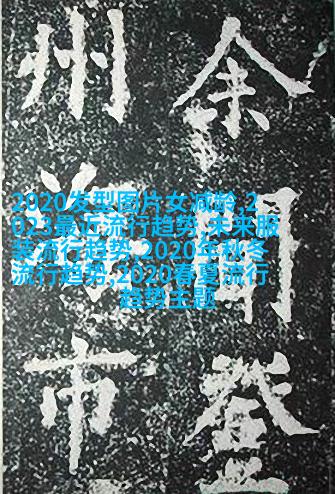 余登
州市
2020发型图片女减龄,2
023最近流行趋势,未来服
装流行趋势,2020年秋冬
流行趋势,2020春夏流行
趋势主题